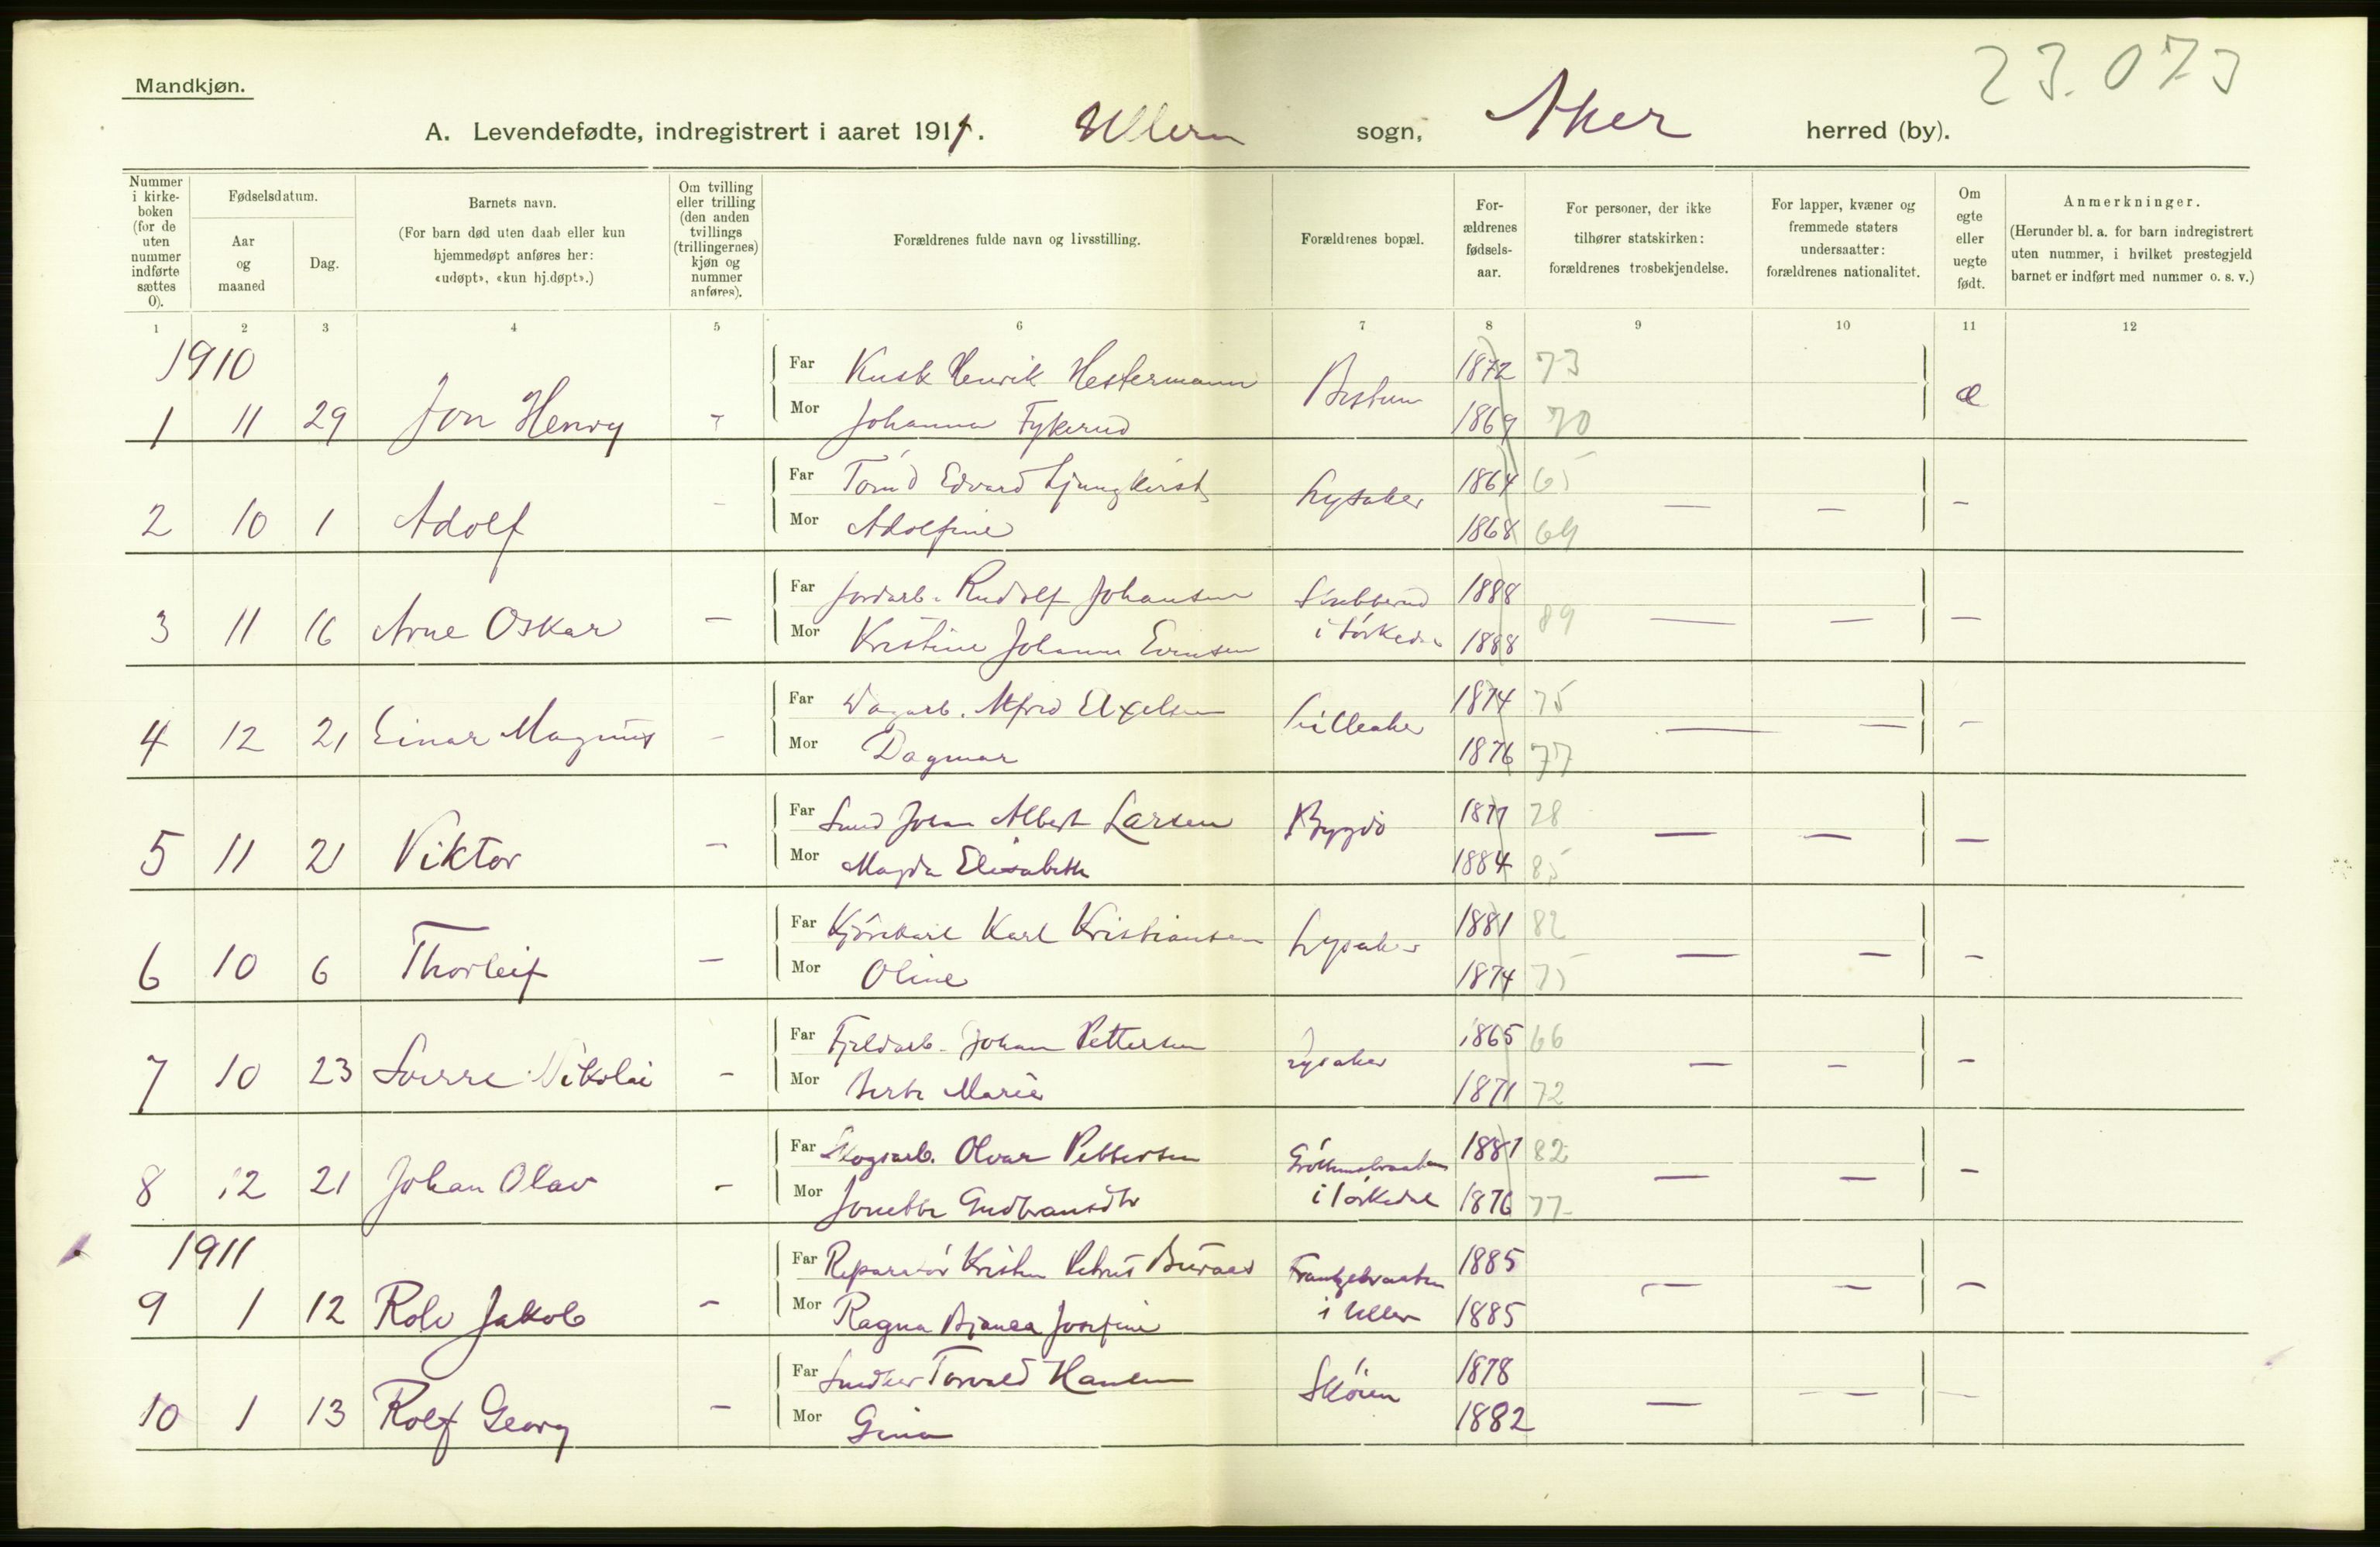 23.073
Mandkjøn.
A. Levendefødte, indregistrert i aaret 1911. Ullern sogn, Aker herred (by).
Nummer i kirke-boken (for de uten nummer indførte sættes 0).
Fødselsdatum.
Aar og maaned
Dag.
Barnets navn.
(For barn død uten daab eller kun hjemmedøpt anføres her: «udøpt», «kun hj.døpt».)
Om tvilling eller trilling (den anden tvillings (trillingernes) kjøn og nummer anføres).
Forældrenes fulde navn og livsstilling.
Forældrenes bopæl.
For-ældrenes fødsels-aar.
For personer, der ikke tilhører statskirken: forældrenes trosbekjendelse.
For lapper, kvæner og fremmede staters undersaatter: forældrenes nationalitet.
Om egte eller uegte født.
Anmerkninger.
(Herunder bl. a. for barn indregistrert uten nummer, i hvilket prestegjeld barnet er indført med nummer o. s. v.)
1 2 3 4 5 6 7 8 9 10 11 12
1910
Far Kusk Henrik Hestermann Bestum 1872 73
1 11 29 Jon Henry - Mor Johanna Fykerud 1869 70 æ
Far Edvard Ljungkvist Lysaker 1864 65
2 10 1 Adolf - Mor Adolfine 1868 69 — — —
Far Jordarb. Rudolf Johansen 1888
3 11 16 Arne Oskar — Mor Kristine Johanne Evensen i Sørkedal 1888 89 — — —
Far Dagarb. Alfred Axelsen Lilleaker 1874 75
4 12 21 Einar Magnus - Mor Dagmar 1876 77 — — —
Far Smed Johan Albert Larsen Bygdø 1877 78
5 11 21 Viktor — Mor Magda Elisabeth 1884 85 — — —
Far Kjørekarl Karl Kristiansen Lysaker 1881 82
6 10 6 Thorleif — Mor Oline 1874 75 — — —
Far Fjeldarb. Johan Pettersen Lysaker 1865 66
7 10 23 Sverre Nikolai - Mor Berte Marie 1871 72 — — —
Far Skogsarb. Olvar Pettersen 1881 82
8 12 21 Johan Olav - Mor Jonette Gudbransdtr i Sørkedal 1876 77 — — —
1911
Far Reparatør Kristen Petrus Buraas 1885
9 1 12 Rolv Jakob — Mor Ragna Bjanca Josefine i Ullern 1885 — — —
Far Snedker Torvald Hansen Skøien 1878
10 1 13 Rolf Georg — Mor Gina 1882 — — —